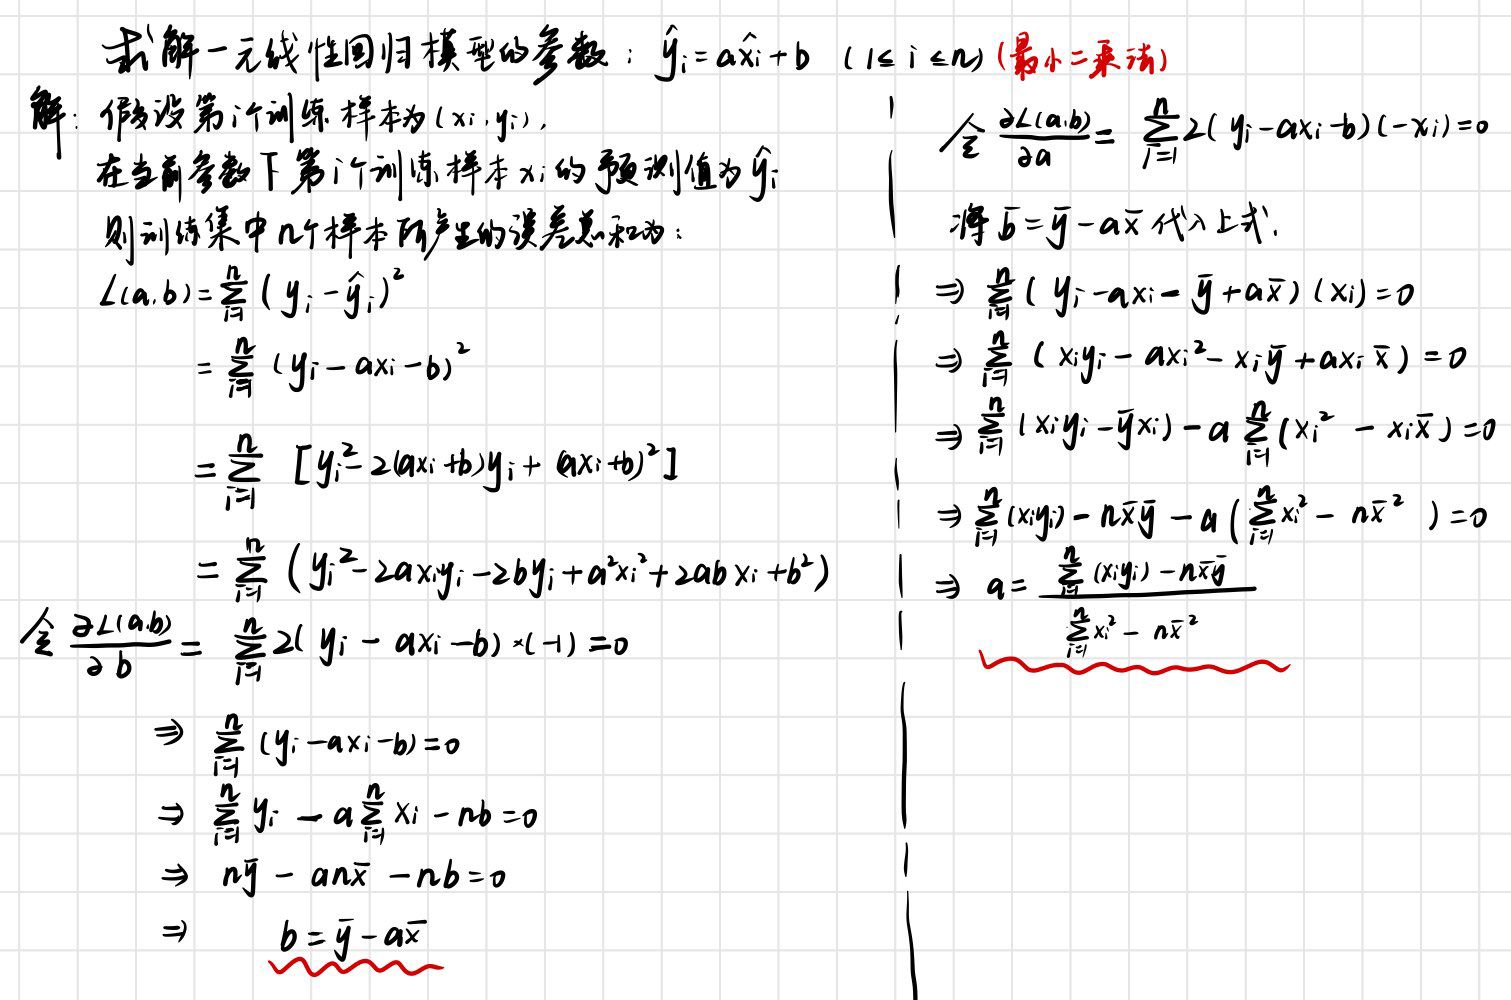 求解一元线性回归模型的参数: ŷᵢ = ax̂ᵢ + b (1≤ i ≤n) (最小二乘法)
解: 假设第i个训练样本为(xᵢ, yᵢ),
在当前参数下第i个训练样本xᵢ的预测值为ŷᵢ
则训练集中n个样本所产生的误差总和为:
L(a,b) = Σⁿᵢ₌₁ (yᵢ - ŷᵢ)²
= Σⁿᵢ₌₁ (yᵢ - axᵢ - b)²
= Σⁿᵢ₌₁ [yᵢ² - 2(axᵢ+b)yᵢ + (axᵢ+b)²]
= Σⁿᵢ₌₁ (yᵢ² - 2axᵢyᵢ - 2byᵢ + a²xᵢ² + 2abxᵢ + b²)
令 ∂L(a,b)/∂b = Σⁿᵢ₌₁ 2(yᵢ - axᵢ - b)×(-1) = 0
⇒ Σⁿᵢ₌₁ (yᵢ - axᵢ - b) = 0
⇒ Σⁿᵢ₌₁ yᵢ - a Σⁿᵢ₌₁ xᵢ - nb = 0
⇒ nȳ - anx̄ - nb = 0
⇒ b = ȳ - ax̄
令 ∂L(a,b)/∂a = Σⁿᵢ₌₁ 2(yᵢ - axᵢ - b)(-xᵢ) = 0
将 b̄ = ȳ - ax̄ 代入上式,
⇒ Σⁿᵢ₌₁ (yᵢ - axᵢ - ȳ + ax̄)(xᵢ) = 0
⇒ Σⁿᵢ₌₁ (xᵢyᵢ - axᵢ² - xᵢȳ + axᵢx̄) = 0
⇒ Σⁿᵢ₌₁ (xᵢyᵢ - ȳxᵢ) - a Σⁿᵢ₌₁ (xᵢ² - xᵢx̄) = 0
⇒ Σⁿᵢ₌₁ (xᵢyᵢ) - nx̄ȳ - a(Σⁿᵢ₌₁ xᵢ² - nx̄²) = 0
⇒ a = (Σⁿᵢ₌₁ (xᵢyᵢ) - nx̄ȳ) / (Σⁿᵢ₌₁ xᵢ² - nx̄²)